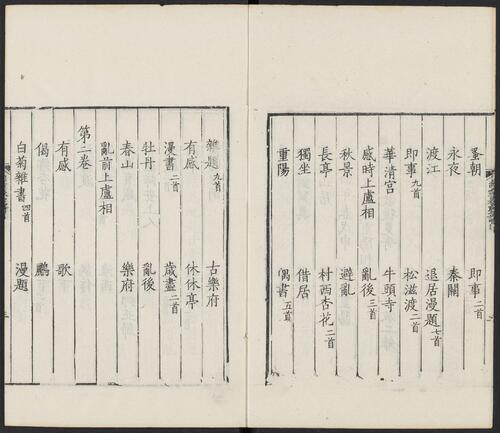 蚤朝 即事二首
永夜 秦關
渡江 退居漫題七首
即事九首 松滋渡二首
華清宮 牛頭寺
感時上盧相 亂後三首
秋景 避亂
長亭 村西杏花二首
獨坐 借居
重陽 偶書五首
雜題九首 古樂府
有感 休休亭
漫書二首 歲盡二首
牡丹 亂後
春山 樂府
亂前上盧相
第二卷
有感 歌
偈 鸝
白菊雜書四首 漫題